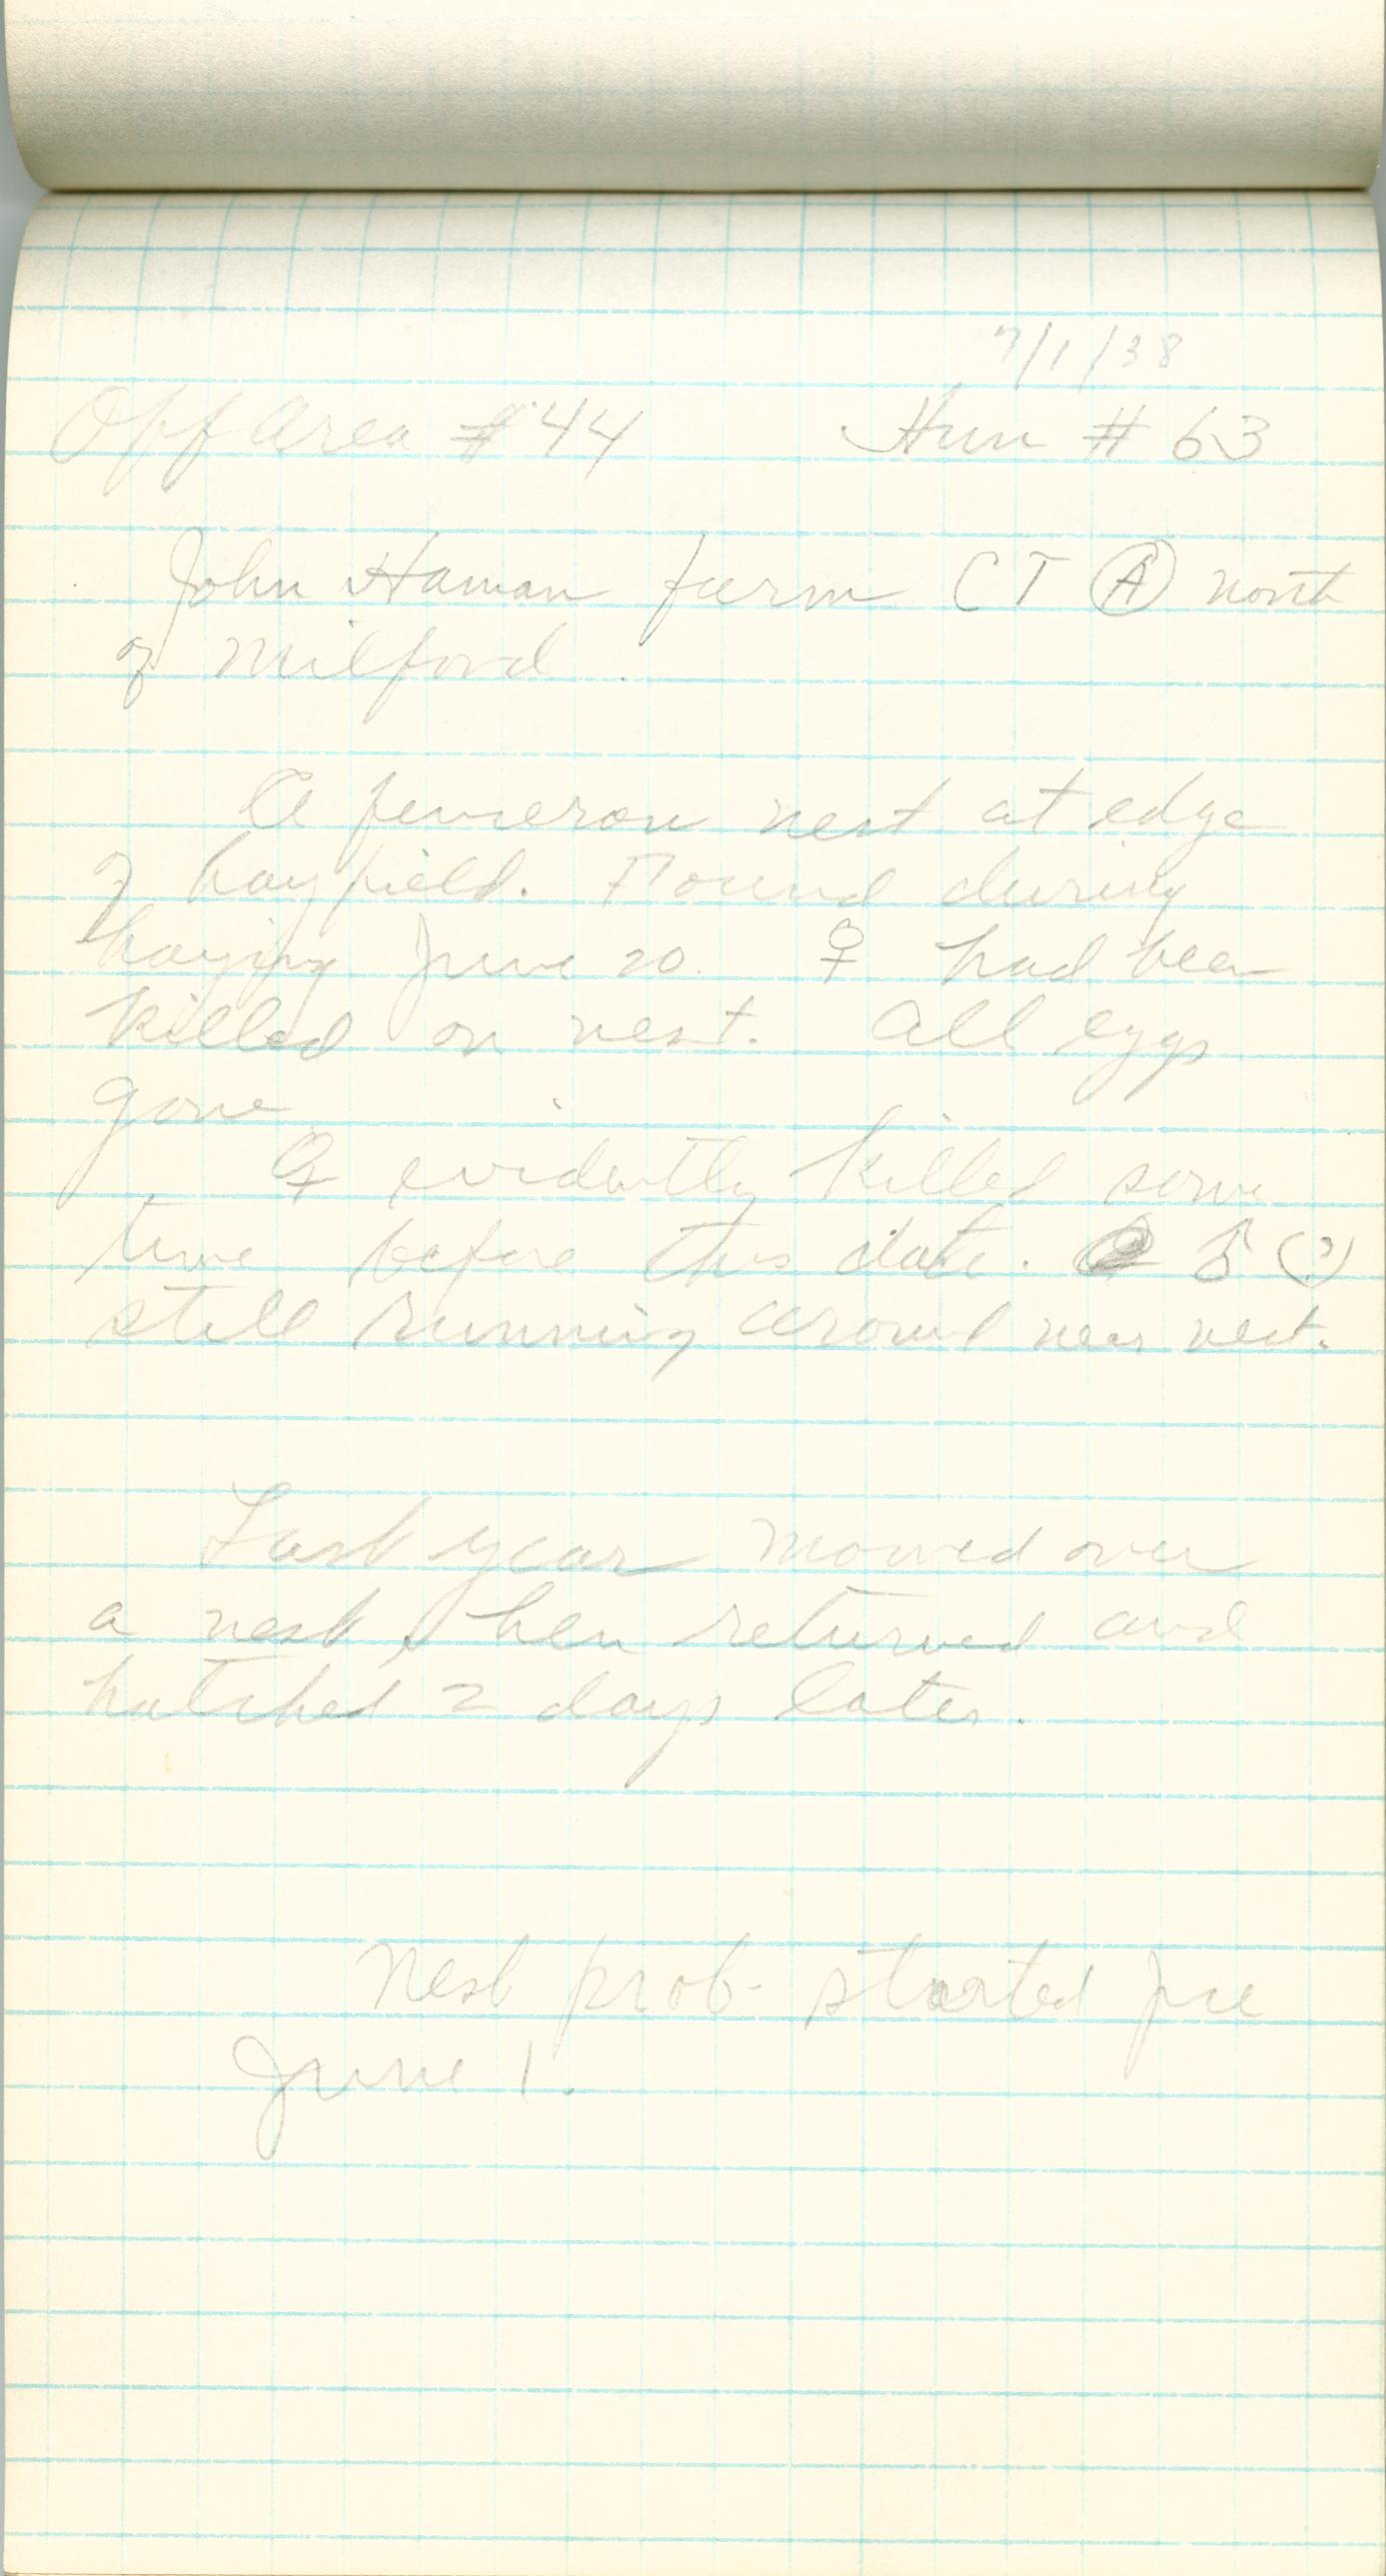 7/1/38
Off area #44 Hun #63
John Haman farm CT Ⓐ north
of Milford.
A fencerow nest at edge
of hayfield. Found during
haying June 20. ♀ had been
killed on nest. All eggs
gone
♀ evidently killed some
time before this date. ♂ (?)
still running around near nest.
Last year mowed over
a nest, hen returned and
hatched 2 days later.
Nest prob. started pre
June 1.